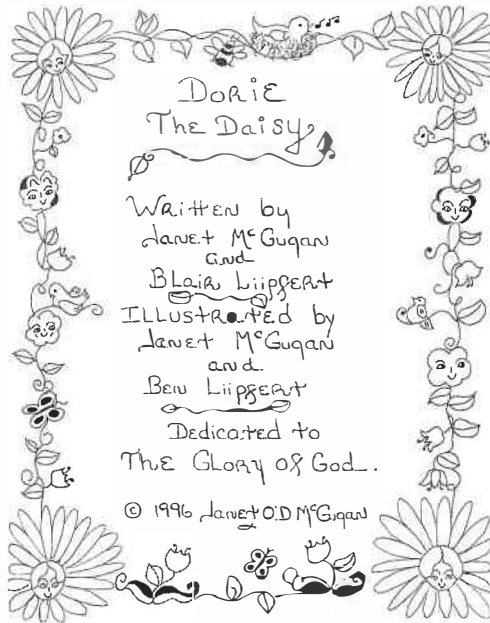 Dorie
The Daisy
Written by
Janet McGugan
and
Blair Liipfert
Illustrated by
Janet McGugan
and
Ben Liipfert
Dedicated to
The Glory of God.
© 1996 Janet O'D McGugan